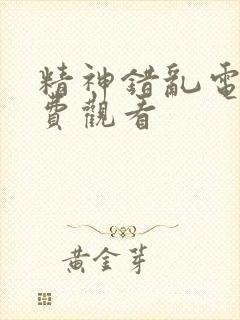 精神錯亂電
費觀看
黃金芽